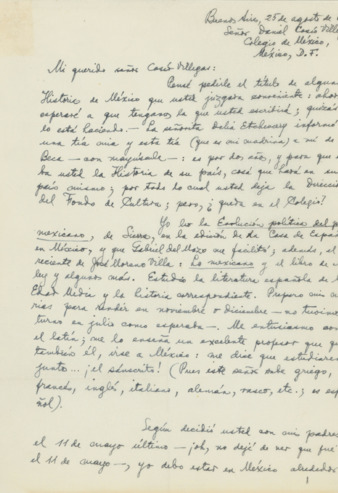 Buenos Aires, 25 de agosto de
Señor Daniel Cosío Ville
Colegio de México,
México, D.F.
Mi querido señor Cosío Villegas:
Pensé pedirle el título de alguna
Historia de México que usted juzgara conveniente: ahora
esperaré a que tengamos la que usted escribirá; quizás
lo está haciendo. — La señorita Delia Etcheverry informó
una tía mía y esta tía (que es mi madrina) a mí de
Beca — aon mayúscula —: es por dos años, y para que
ba usted la Historia de su país, cosa que hará en su
país mismo; por todo lo cual usted deja la Direcció
del Fondo de Cultura; pero, ¿queda en el Colegio?
Yo leo la Evolución política del p
mexicano, de Sierra, en la edición de la Casa de Españ
en México, y que Gabriel del Mazo me facilitó; además, el
reciente de José Moreno Villa: Lo mexicano y el libro de
ley y alguno más. Estudio la literatura española de
Edad Media y la historia correspondiente. Preparo mis
rias para rendir en noviembre o diciembre — no tuvimos
turas en julio como esperaba —. Me entusiasmo con
el latín; me lo enseña un excelente profesor que
también él, irse a México: me dice que estudiaremos
junto... ¡el sánscrito! (Pues este señor sabe griego,
francés, inglés, italiano, alemán, vasco, etc.; es esp
ñol).
Según decidió usted con mi padre
el 11 de mayo último — ¡oh, no dejé de ver que fue
el 11 de mayo —, yo debo estar en México alrededor
1